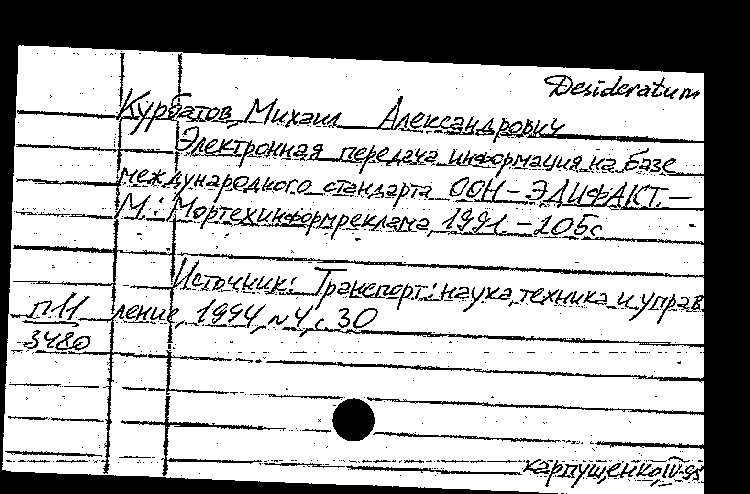 Desideratum
Курбатов, Михаил Александрович
Электронная передача информация на базе
международного стандарта ООН-ЭДИФАКТ.–
М.: Мортехинформреклама, 1991. – 105с
Источник: Транспорт: наука, техника и управ
п11 ление, 1994, №4, с. 30
3480
Карпущенко, IV-95